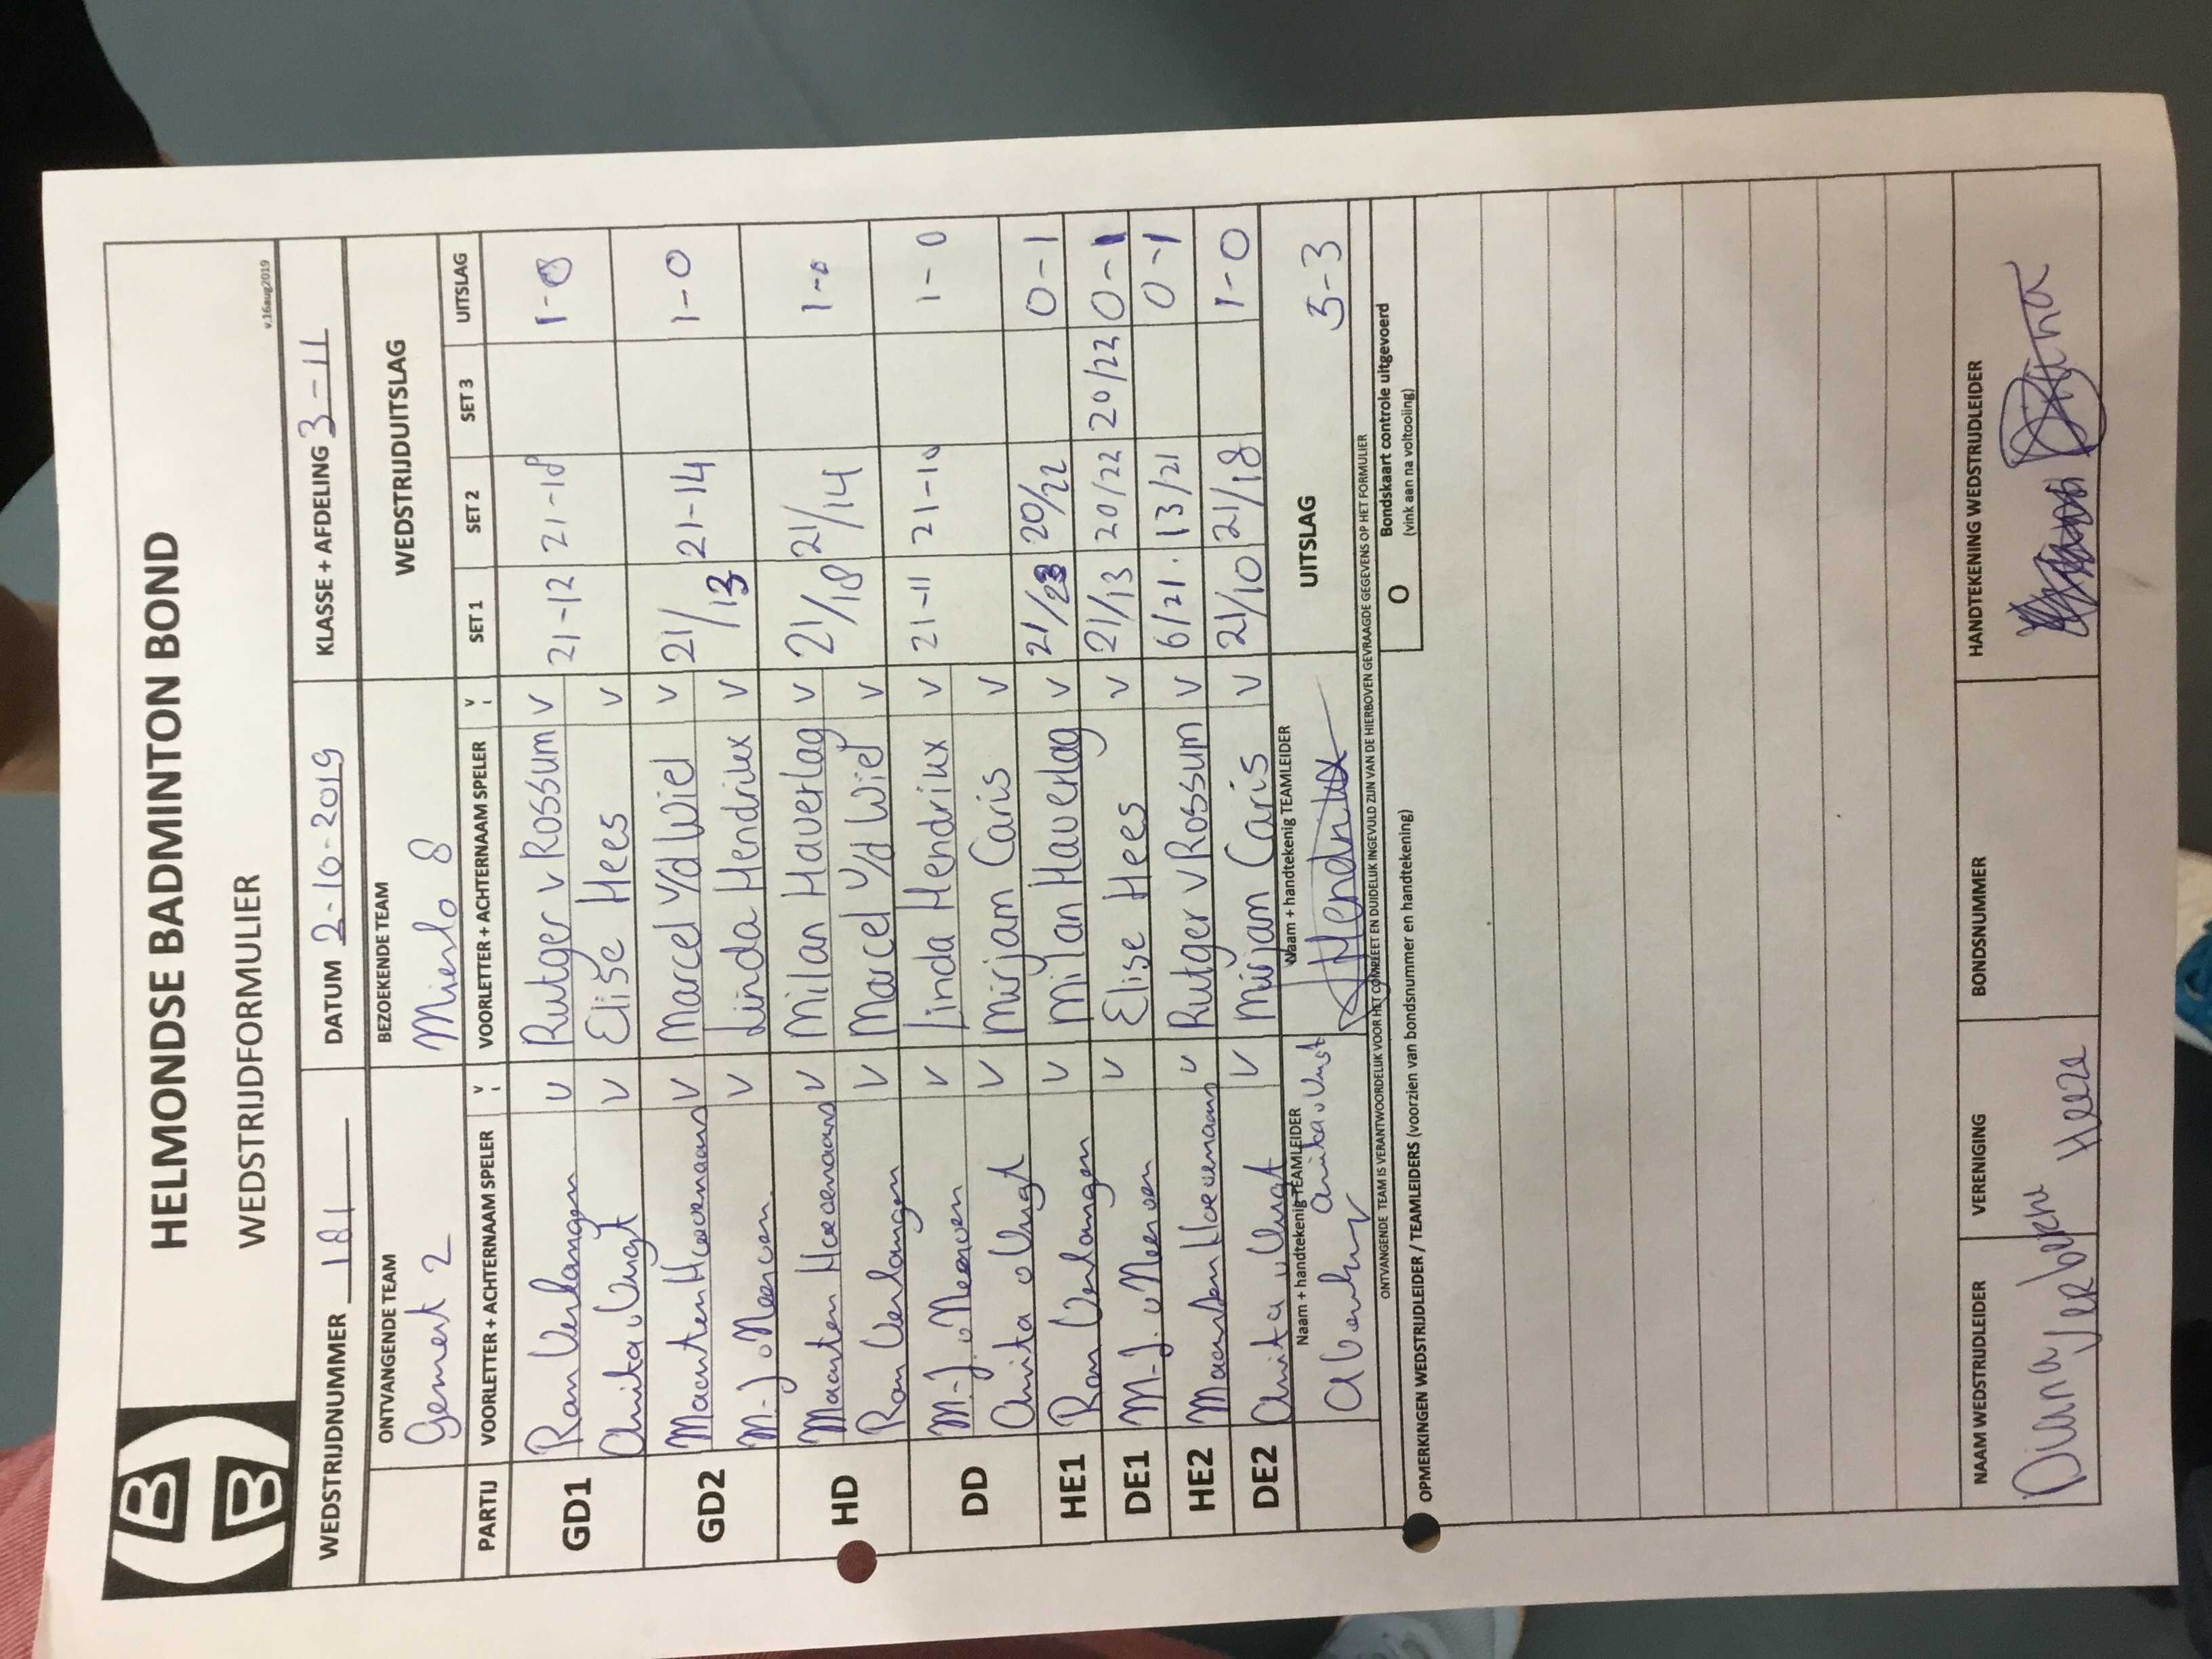 HELMONDSE BADMINTON BOND
WEDSTRIJDFORMULIER
v.16aug2019
WEDSTRIJDNUMMER 181 DATUM 2-10-2019 KLASSE + AFDELING 3-11
ONTVANGENDE TEAM BEZOEKENDE TEAM WEDSTRIJDUITSLAG
Gemert 2 Mierlo 8
PARTIJ VOORLETTER + ACHTERNAAM SPELER V VOORLETTER + ACHTERNAAM SPELER V SET 1 SET 2 SET 3 UITSLAG
GD1 Ron Verlangen V Rutger v Rossum V 21-12 21-18 1-0
Anita v Vugt V Elise Hees V
GD2 Maarten Hoevenaars V Marcel v/d Wiel V 21/13 21-14 1-0
M-J v Meerven V Linda Hendrikx V
HD Maarten Hoevenaars V Milan Haverlag V 21/18 21/14 1-0
Ron Verlangen V Marcel v/d Wiel V
DD M-J. v Meerven V Linda Hendrikx V 21-11 21-10 1-0
Anita v Vugt V Mirjam Caris V
HE1 Ron Verlangen V Milan Haverlag V 21/23 20/22 0-1
DE1 M-J. v Meerven V Elise Hees V 21/13 20/22 20/22 0-1
HE2 Maarten Hoevenaars V Rutger v Rossum V 6/21 13/21 0-1
DE2 Anita v Vugt V Mirjam Caris V 21/10 21/18 1-0
Naam + handtekenig TEAMLEIDER Naam + handtekenig TEAMLEIDER UITSLAG 5-3
Anita v Vugt Hendrikx
ONTVANGENDE TEAM IS VERANTWOORDELIJK VOOR HET COMPLEET EN DUIDELIJK INGEVULD ZIJN VAN DE HIERBOVEN GEVRAAGDE GEGEVENS OP HET FORMULIER
O Bondskaart controle uitgevoerd
(vink aan na voltooiing)
OPMERKINGEN WEDSTRIJDLEIDER / TEAMLEIDERS (voorzien van bondsnummer en handtekening)
NAAM WEDSTRIJDLEIDER VERENIGING BONDSNUMMER HANDTEKENING WEDSTRIJDLEIDER
Diana Heeze Diana